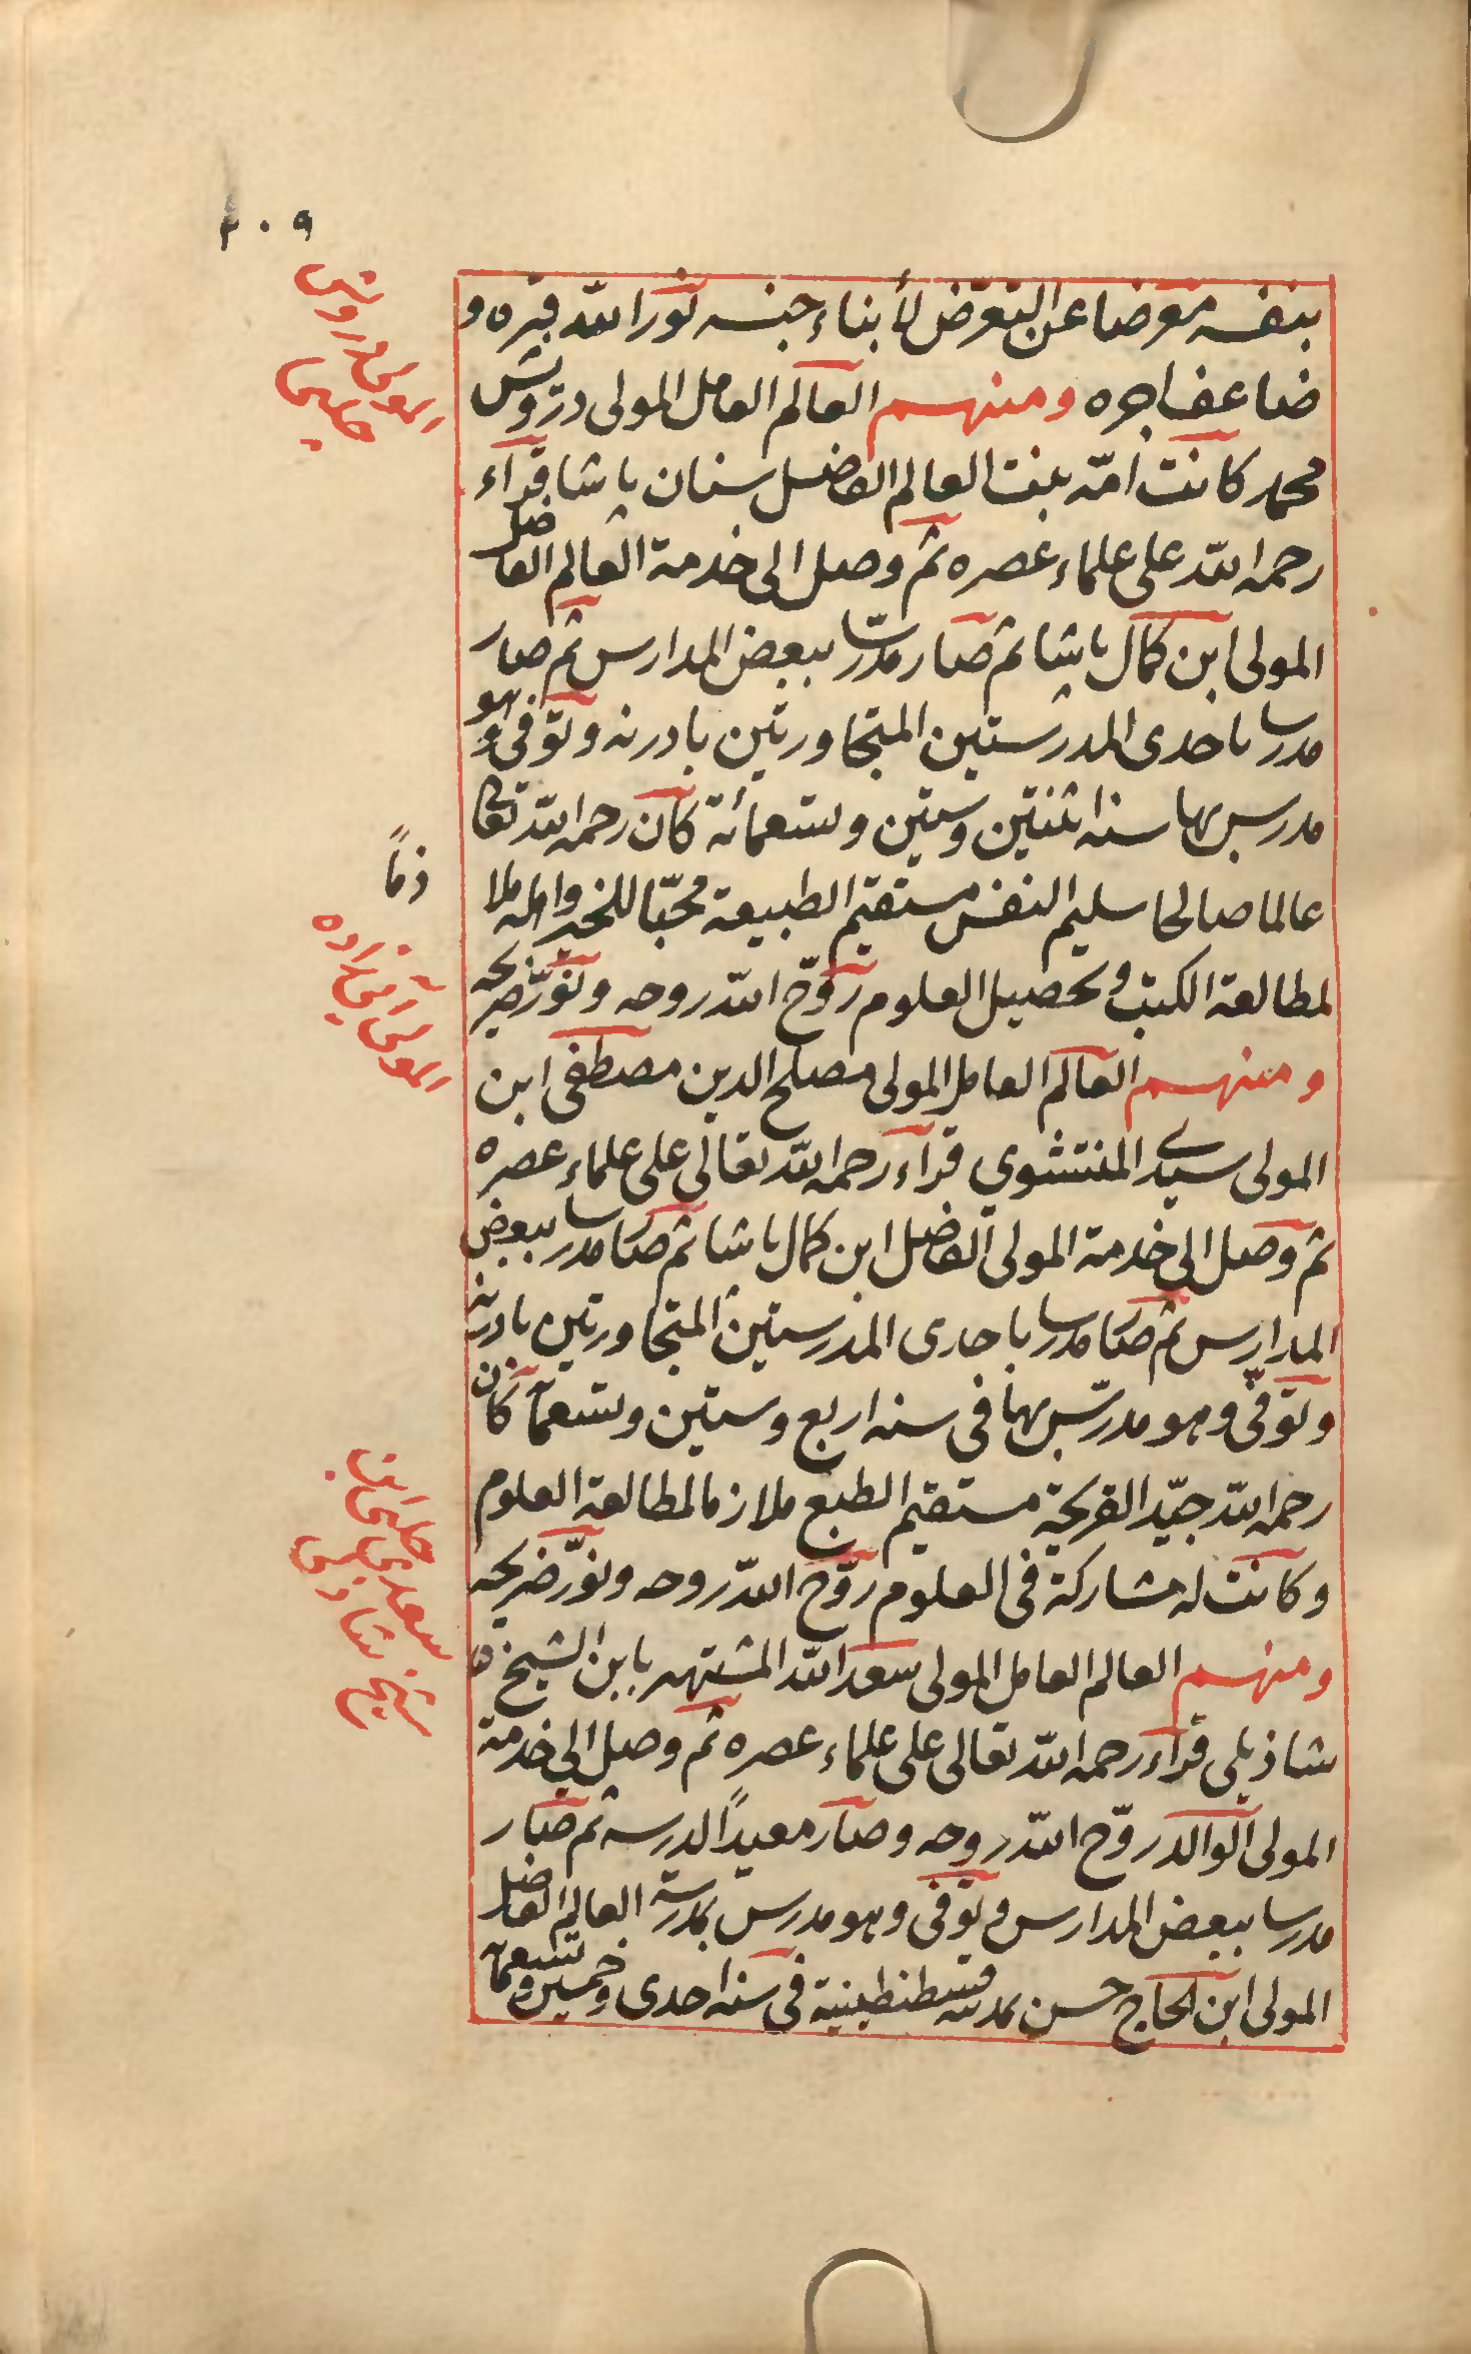 ٢٠٩
بنفسه معرضا عن التعرض لأبناء جنسه نور الله قبره و
ضاعف اجره ومنهم العالم العامل المولى درويش
محمد كانت امّه بنت العالم الفاضل سنان پاشا قراء
رحمه الله على علماء عصره ثم وصل الى خدمة العالم الفاضل
المولى ابن كمال پاشا ثم صار مدرسا ببعض المدارس ثم صار
مدرسا باحدى المدرستين المتجاورتين بادرنه وتوفى وهو
مدرس بها سنه اثنتين وستين وتسعمائة كان رحمه الله تعالى
عالما صالحا سليم النفس مستقيم الطبيعة محبّا للخير واهله ملا
زمًا
لمطالعة الكتب وتحصيل العلوم روّح الله روحه ونوّر ضريحه
ومنهم العالم العامل المولى مصلح الدين مصطفى ابن
المولى سيدى المنتشوي قراء رحمه الله تعالى على علماء عصره
ثم وصل الى خدمة المولى الفاضل ابن كمال پاشا ثم صار مدرسا ببعض
المدارس ثم صار مدرسا باحدى المدرستين المتجاورتين بادرنه
وتوفّى وهو مدرّس بها فى سنه اربع وستين وتسعمائة كان
رحمه الله جيّد القريحة مستقيم الطبع ملازما لمطالعة العلوم
وكانت له مشاركة فى العلوم روّح الله روحه ونوّر ضريحه
ومنهم العالم العامل المولى سعد الله المشتهر بابن الشيخ
شاذيلى قراء رحمه الله تعالى على علماء عصره ثم وصل الى خدمة
المولى الوالد روّح الله روحه وصار معيدًا لدرسه ثم صار
مدرسا ببعض المدارس وتوفى وهو مدرس بمدرسة العالم الفاضل
المولى ابن الحاج حسن بمدينه قسطنطينية فى سنه احدى وخمسين وتسعمائة
المولى درويش
چلبى
سعدى چلبى ابن
شيخ شاذيلى